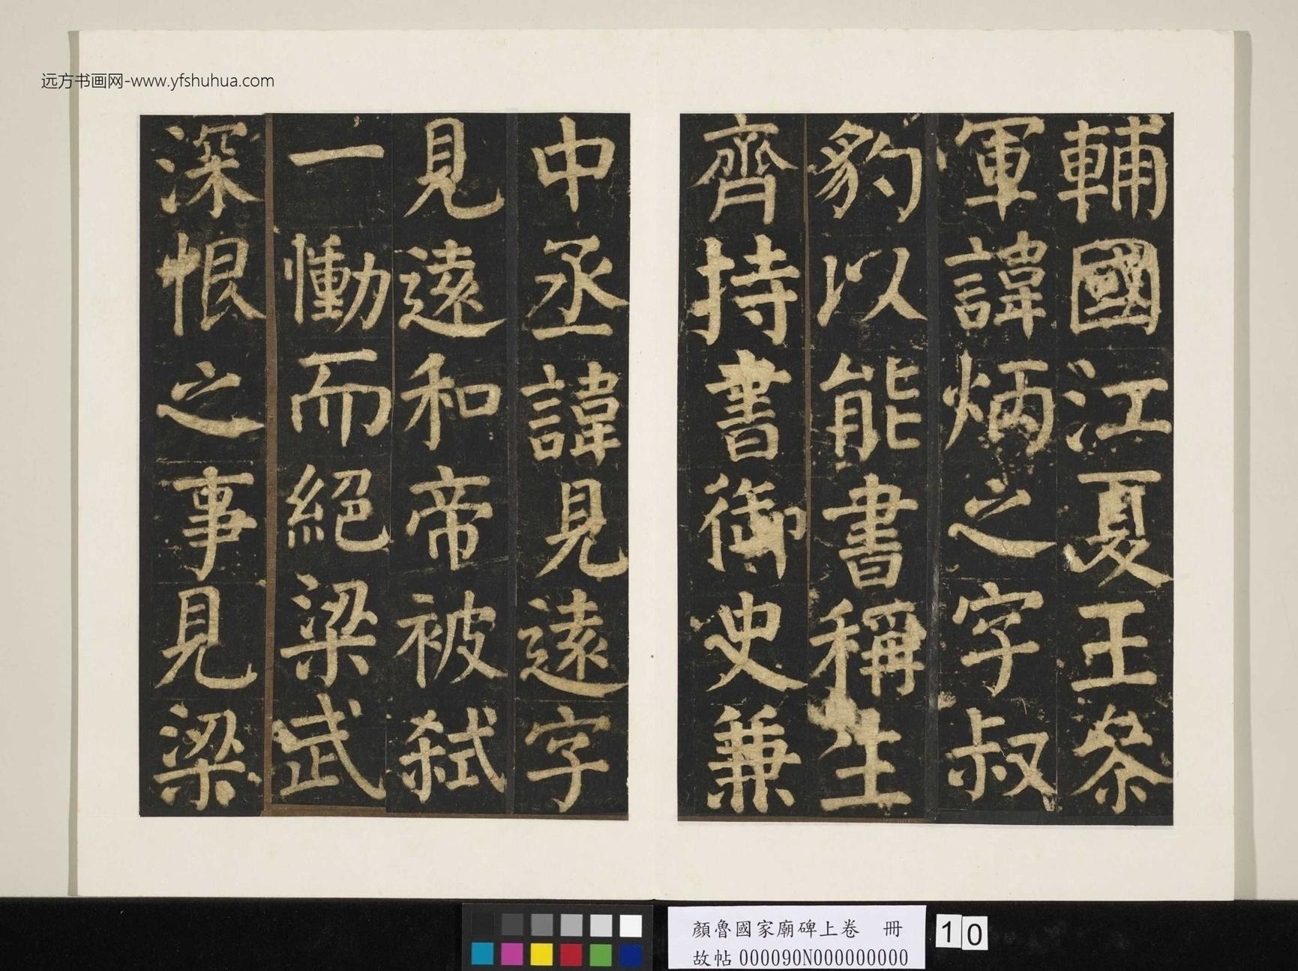 远方书画网-www.yfshuhua.com
輔國江夏王叅
軍諱炳之字叔
豹以能書稱生
齊持書御史兼
中丞諱見遠字
見遠和帝被弑
一慟而絕梁武
深恨之事見梁
顏魯國家廟碑上卷 冊
故帖000090N000000000
10